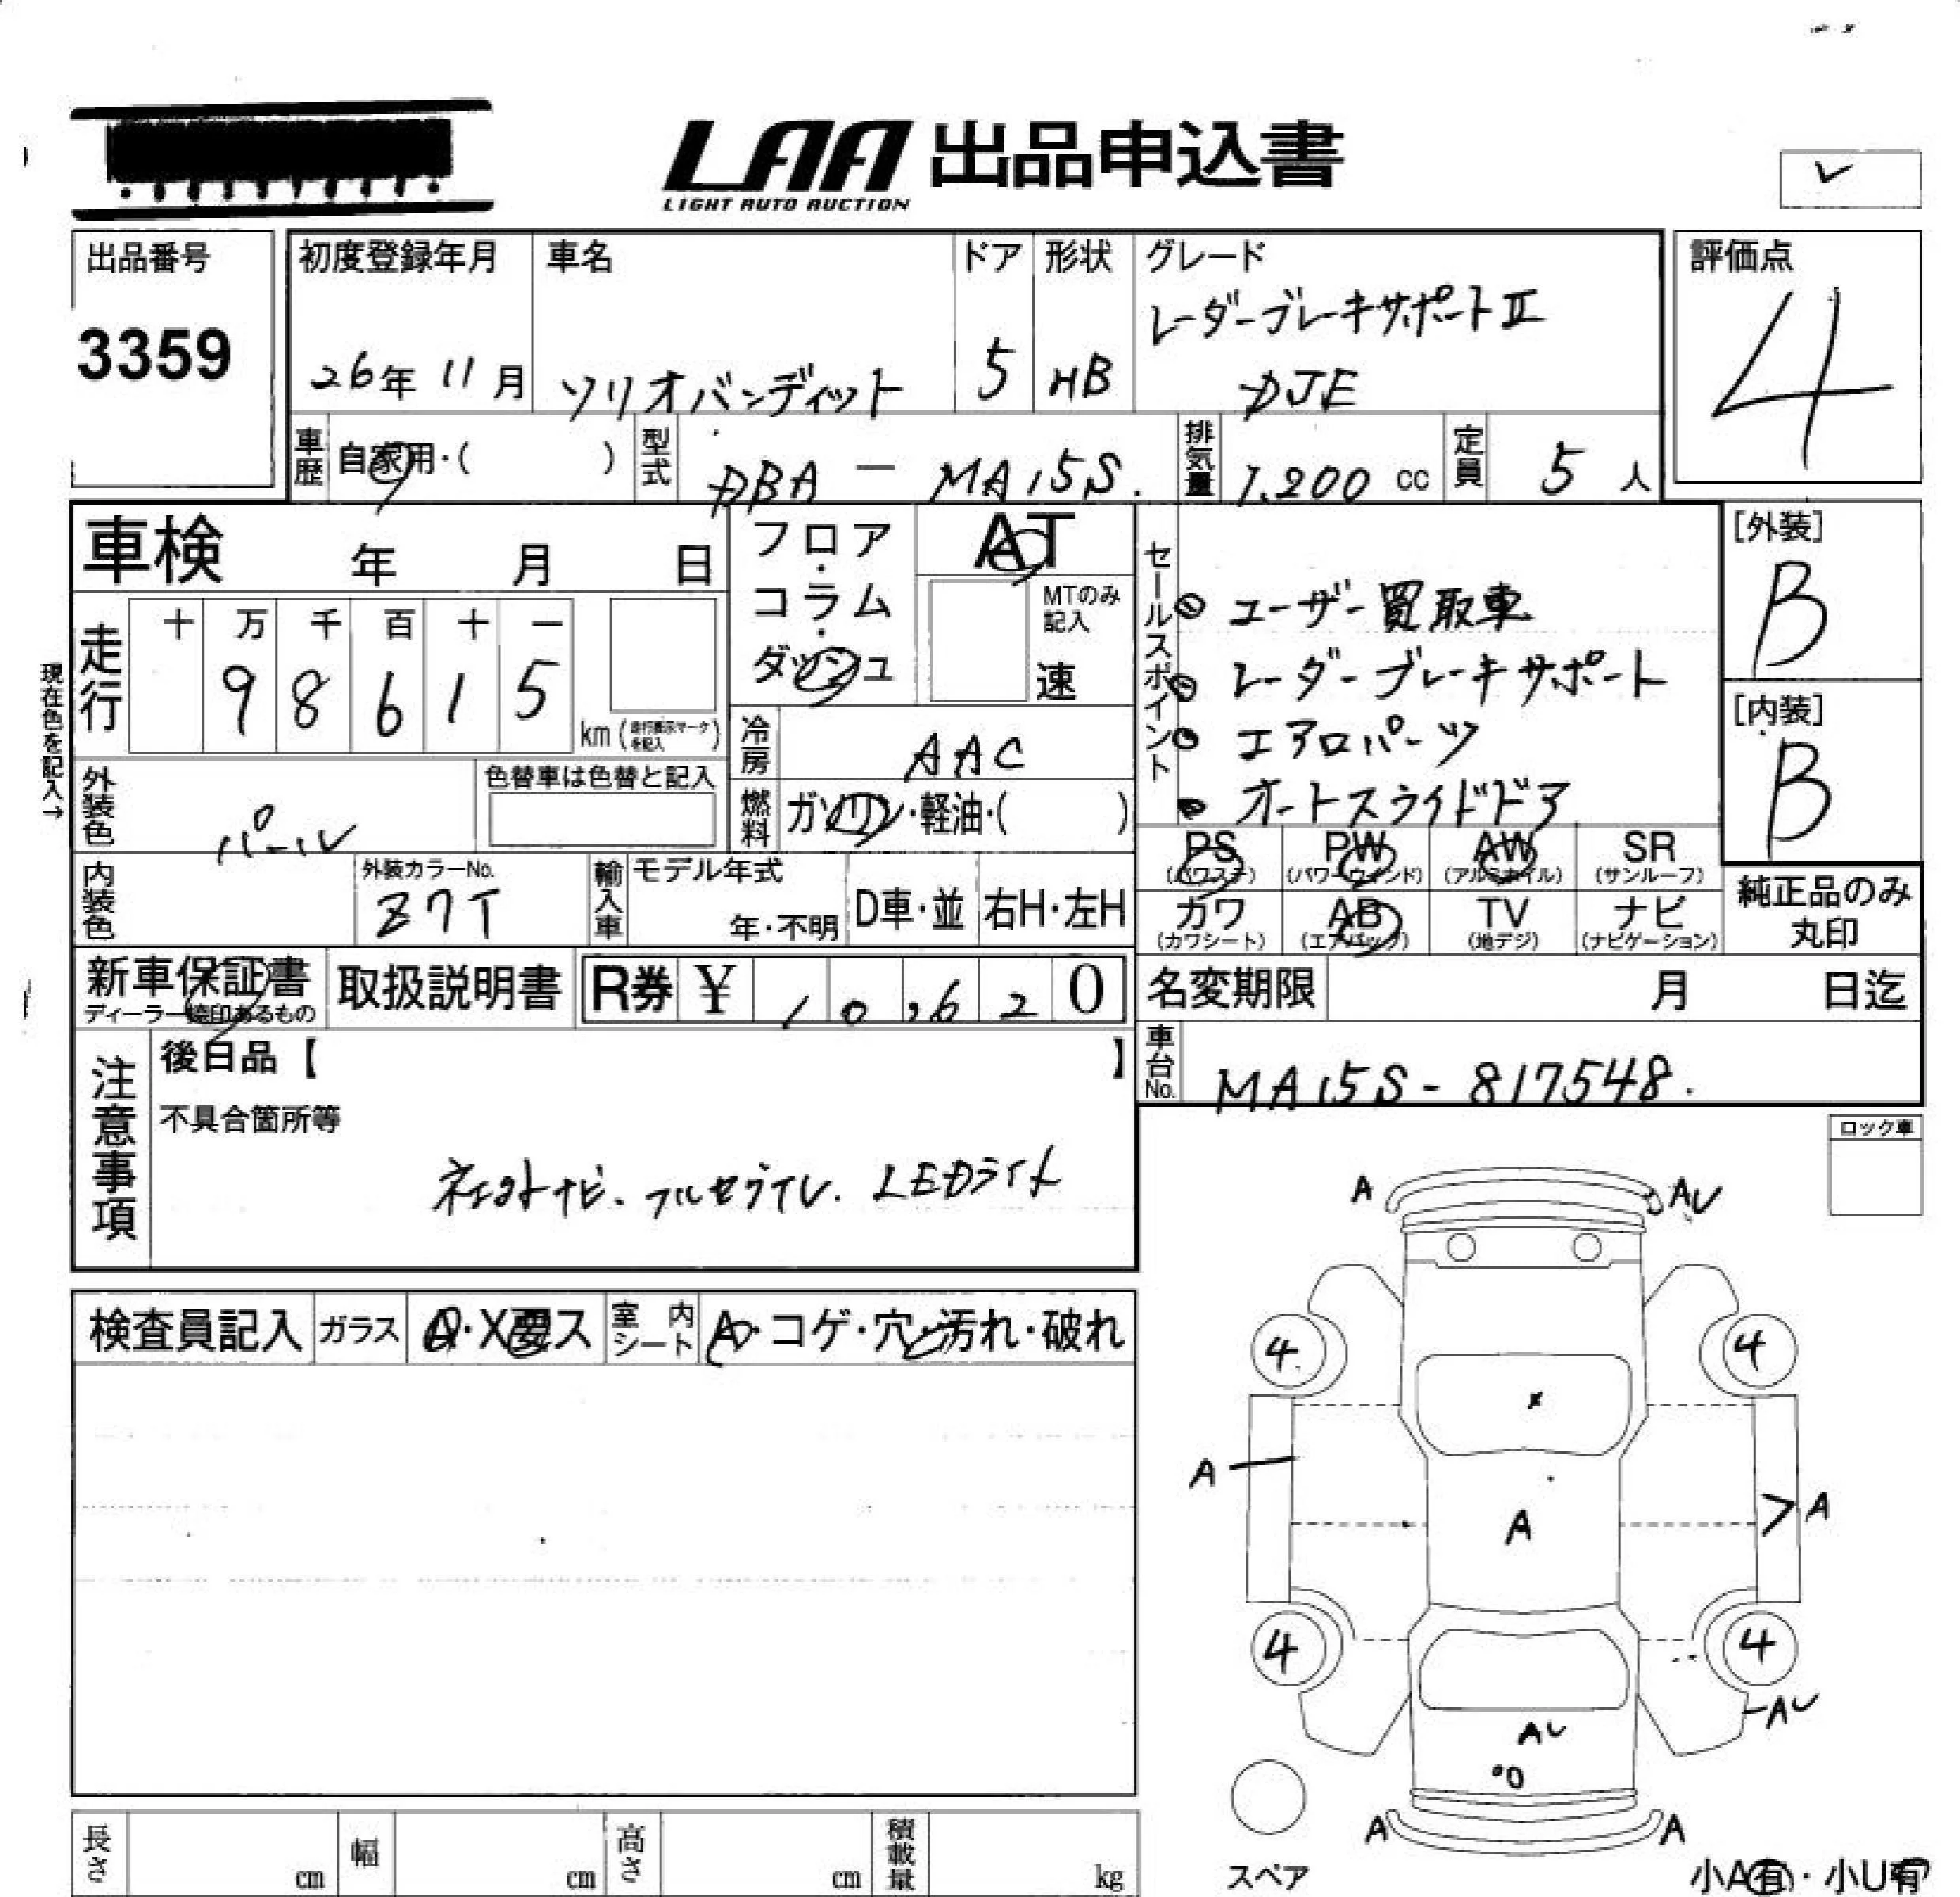 LAA 出品申込書
LIGHT AUTO AUCTION
出品番号
3359
初度登録年月
26年 11月
車名
ソリオバンディット
ドア
5
形状
HB
グレード
レーダーブレーキサポートⅡ
DJE
評価点
4
車歴 自家用・( )
型式 DBA - MA15S
排気量 1,200 cc
定員 5 人
車検 年 月 日
フロア・コラム・ダッシュ
AT
MTのみ記入
速
セールスポイント
ユーザー買取車
レーダーブレーキサポート
エアロパーツ
オートスライドドア
[外装]
B
[内装]
B
現在色を記入→
走行
十 万 千 百 十 一
9 8 6 1 5
km (走行表示マークを記入)
冷房 AAC
燃料 ガソリン・軽油・( )
外装色 パール
色替車は色替と記入
内装色
外装カラーNo.
Z7T
輸入車
モデル年式
年・不明
D車・並 右H・左H
PS (パワステ)
PW (パワーウィンド)
AW (アルミホイル)
SR (サンルーフ)
カワ (カワシート)
AB (エアバッグ)
TV (地デジ)
ナビ (ナビゲーション)
純正品のみ
丸印
新車保証書
ディーラー捺印あるもの
取扱説明書
R券 ¥ 10,620
名変期限 月 日迄
車台No. MA15S-817548.
注意事項
後日品【 】
不具合箇所等
社外ナビ. フルセグTV. LEDライト
ロック車
検査員記入
ガラス A・X要ス
室内シート A・コゲ・穴・汚れ・破れ
A AU
4 4
x
A A A
4 4
AU AU
A A
スペア
小A有・小U有
長さ cm
幅 cm
高さ cm
積載量 kg